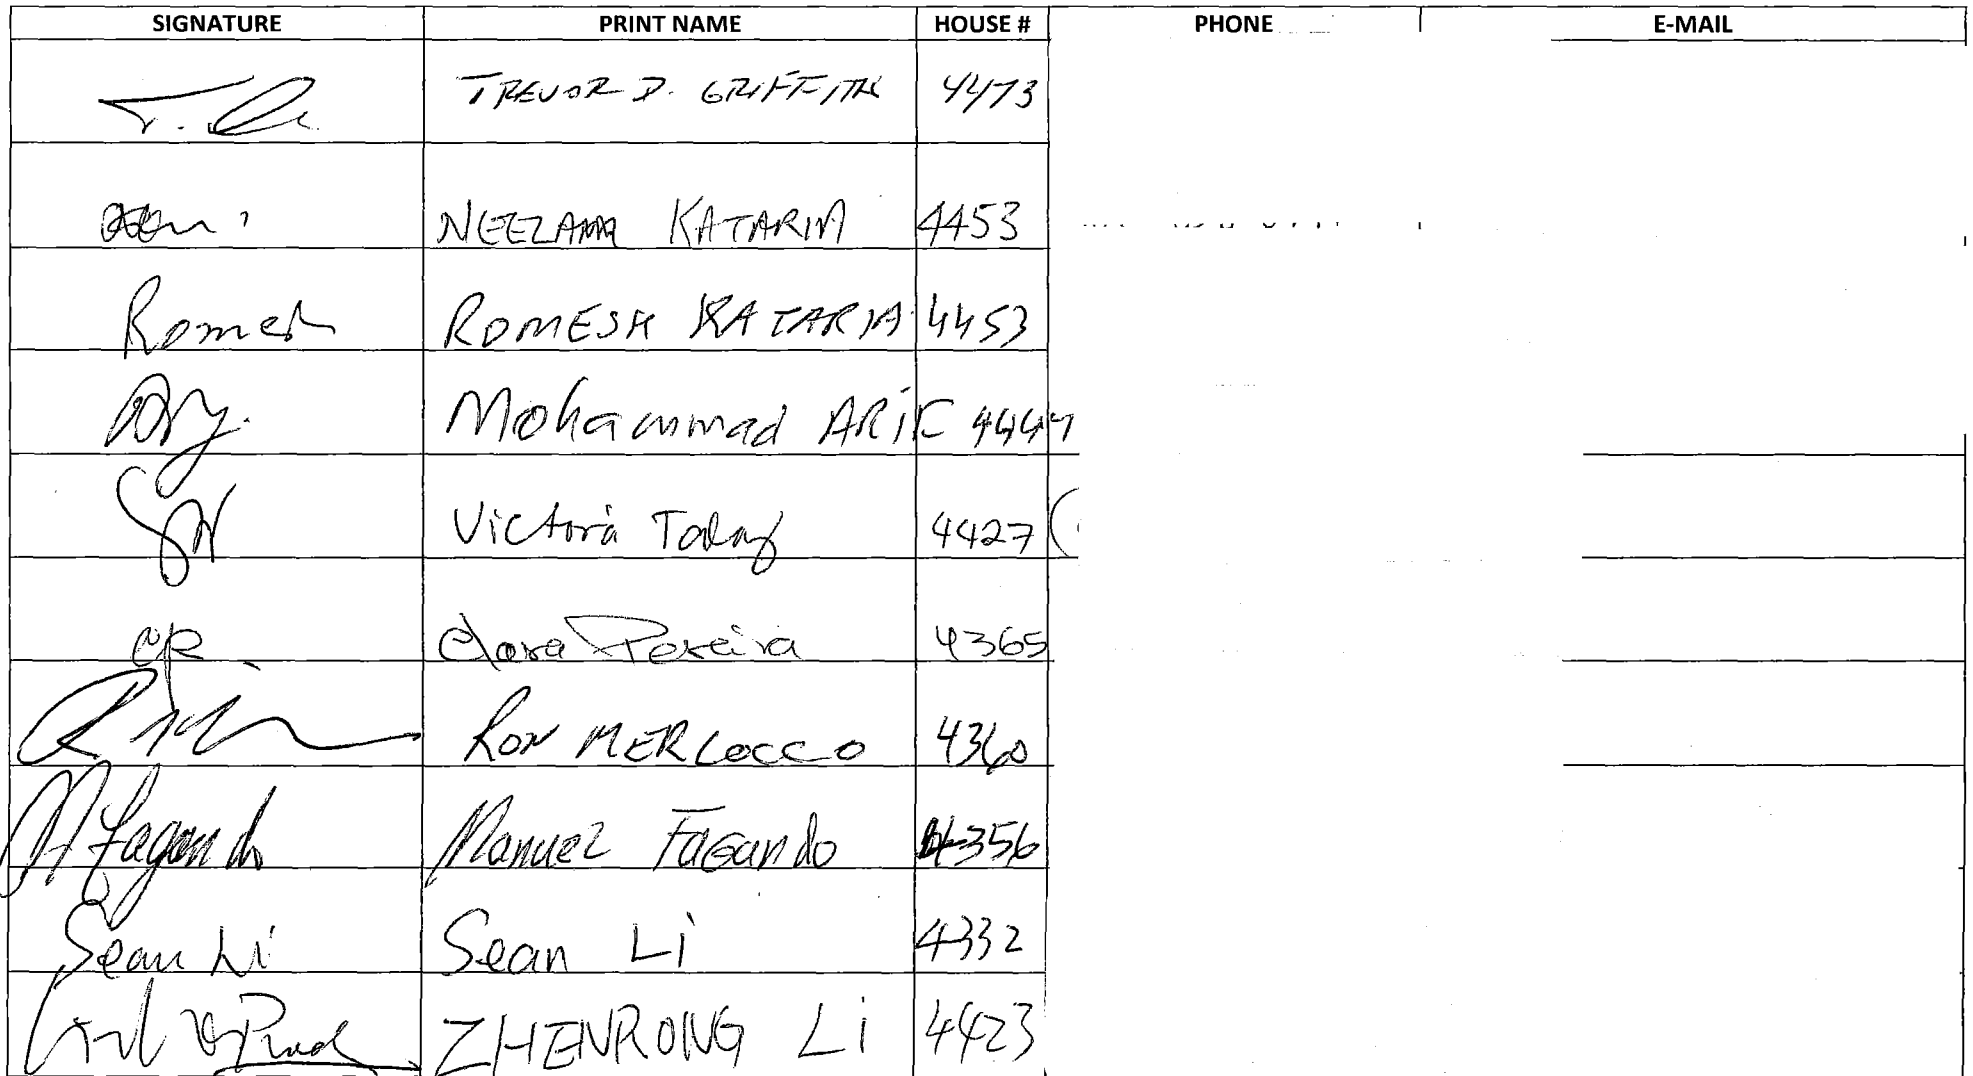 SIGNATURE PRINT NAME HOUSE # PHONE E-MAIL
TREVOR D. GRIFFITH 4473
KATARIA 4453
Romesh ROMESH KATARIA 4453
Mohammad ARIF 4447
Victoria 4427
CP Clara Pereira 4365
RON MERLOCCO 4360
M Fagundo Manuel Fagundo 4356
Sean Li Sean Li 4332
ZHENRONG Li 4423